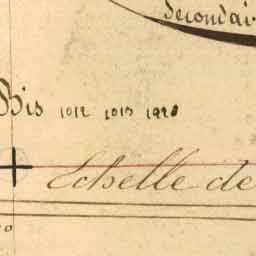 Secondai
Bis 1012 1013 1920
Echelle de